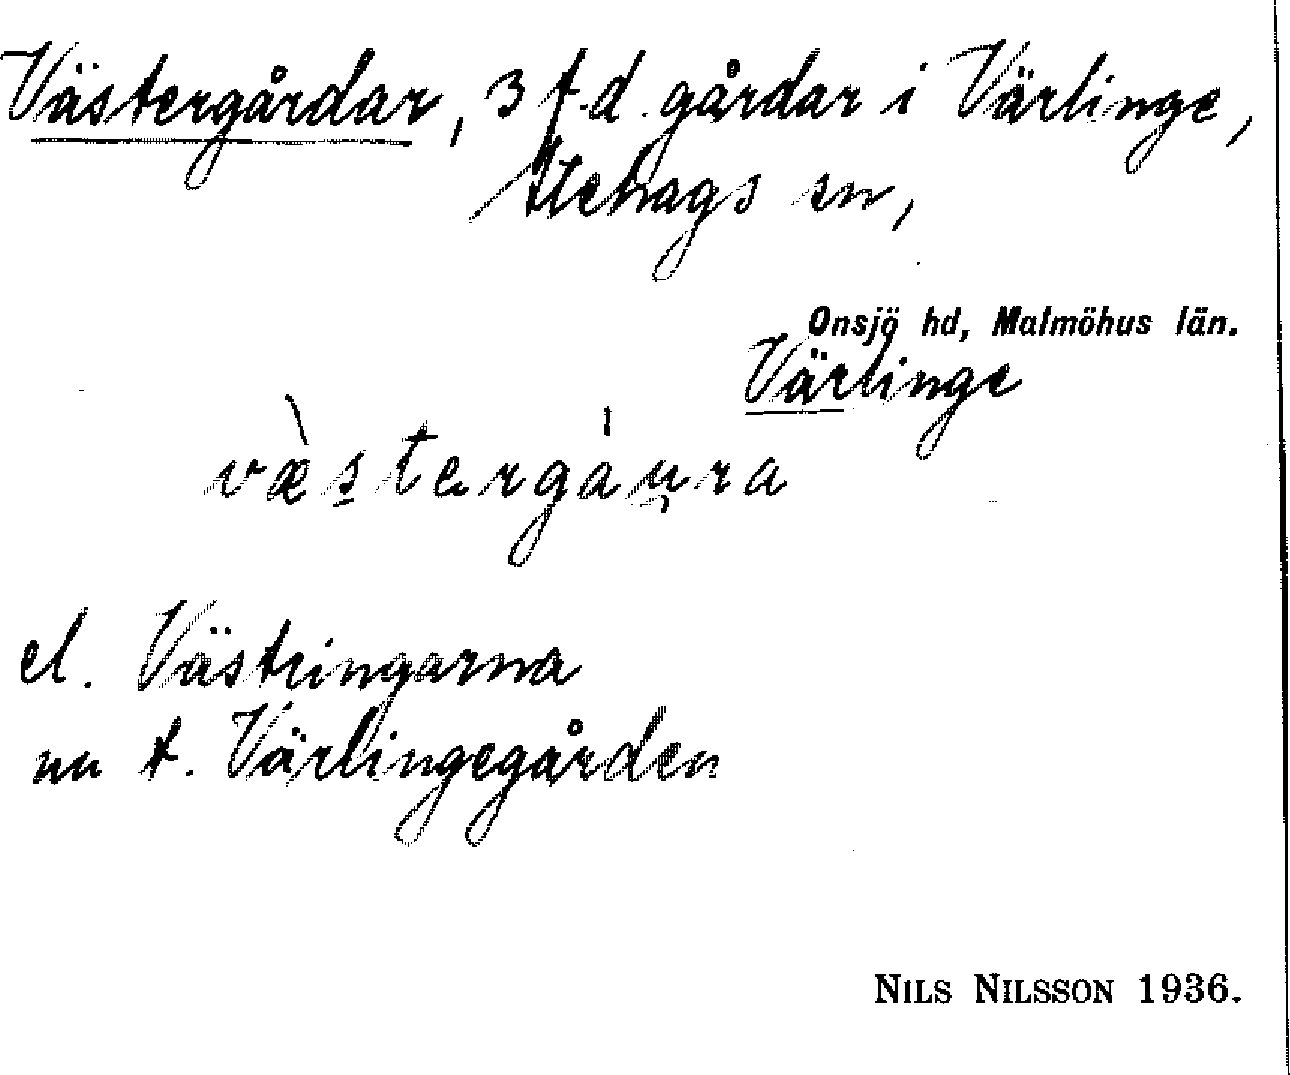 Västergårdar, 3 f.d. gårdar i Värlinge,
Stehags sn,
Onsjö hd, Malmöhus län.
Värlinge
væ̀stergáu̯ra
el. Västringarna
nu t. Värlingegården
NILS NILSSON 1936.